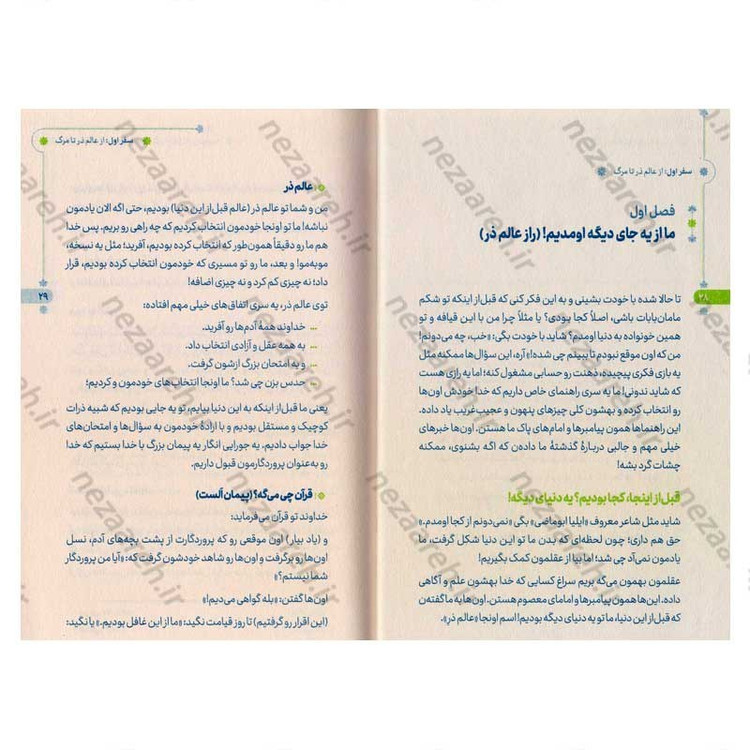 سفر اول: از عالم ذر تا مرگ
فصل اول
ما از یه جای دیگه اومدیم! (راز عالم ذر)
۲۸
تا حالا شده با خودت بشینی و به این فکر کنی که قبل از اینکه تو شکم
مامان‌بابات باشی، اصلاً کجا بودی؟ یا مثلاً چرا من با این قیافه و تو
همین خونواده به دنیا اومدم؟ شاید با خودت بگی: «خب، چه می‌دونم!
من که اون موقع نبودم تا ببینم چی شده!» آره، این سؤال‌ها ممکنه مثل
یه بازی فکری پیچیده، ذهنت رو حسابی مشغول کنه؛ اما یه رازی هست
که شاید ندونی! ما یه سری راهنمای خاص داریم که خدا خودش اون‌ها
رو انتخاب کرده و بهشون کلی چیزهای پنهون و عجیب‌غریب یاد داده.
این راهنماها همون پیامبرها و امام‌های پاک ما هستن. اون‌ها خبرهای
خیلی مهم و جالبی دربارهٔ گذشتهٔ ما داده‌ن که اگه بشنوی، ممکنه
چشات گرد بشه!
قبل از اینجا، کجا بودیم؟ یه دنیای دیگه!
شاید مثل شاعر معروف «ایلیا ابوماضی» بگی «نمی‌دونم از کجا اومدم.»
حق هم داری؛ چون لحظه‌ای که بدن ما تو این دنیا شکل گرفت، ما
یادمون نمی‌آد چی شد؛ اما بیا از عقلمون کمک بگیریم!
عقلمون بهمون می‌گه بریم سراغ کسایی که خدا بهشون علم و آگاهی
داده. این‌ها همون پیامبرها و امامای معصوم هستن. اون‌ها به ما گفته‌ن
که قبل از این دنیا، ما تو یه دنیای دیگه بودیم! اسم اونجا «عالم ذر».
سفر اول: از عالم ذر تا مرگ
۲۹
عالم ذر
من و شما تو عالم ذر (عالم قبل از این دنیا) بودیم، حتی اگه الان یادمون
نباشه! ما تو اونجا خودمون انتخاب کردیم که چه راهی رو بریم. پس خدا
هم ما رو دقیقاً همون‌طور که انتخاب کرده بودیم، آفرید؛ مثل یه نسخه،
موبه‌مو! و بعد، ما رو تو مسیری که خودمون انتخاب کرده بودیم، قرار
داد؛ نه چیزی کم کرد و نه چیزی اضافه!
توی عالم ذر، یه سری اتفاق‌های خیلی مهم افتاده:
... خداوند همهٔ آدم‌ها رو آفرید.
... به همه عقل و آزادی انتخاب داد.
... و یه امتحان بزرگ ازشون گرفت.
... حدس بزن چی شد؟ ما اونجا انتخاب‌های خودمون و کردیم؛
یعنی ما قبل از اینکه به این دنیا بیایم، تو یه جایی بودیم که شبیه ذرات
کوچیک و مستقل بودیم و با ارادهٔ خودمون به سؤال‌ها و امتحان‌های
خدا جواب دادیم. یه جورایی انگار یه پیمان بزرگ با خدا بستیم که خدا
رو به‌عنوان پروردگارمون قبول داریم.
قرآن چی می‌گه؟ (پیمان اَلَست)
خداوند تو قرآن می‌فرماید:
و (یاد بیار) اون موقعی رو که پروردگارت از پشت بچه‌های آدم، نسل
اون‌ها رو برگرفت و اون‌ها رو شاهد خودشون گرفت که: «آیا من پروردگار
شما نیستم؟»
اون‌ها گفتن: «بله گواهی می‌دیم!»
(این اقرار رو گرفتیم) تا روز قیامت نگید: «ما از این غافل بودیم.» یا نگید:
nezaareh.ir